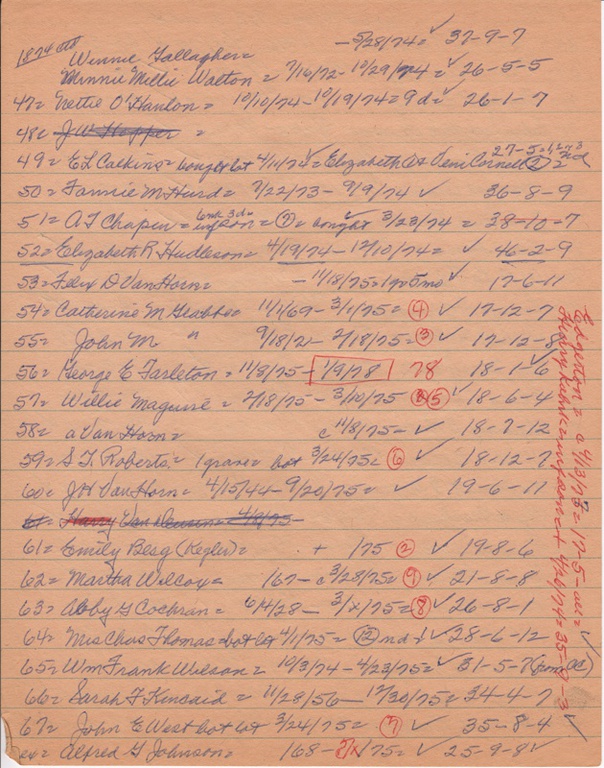 1874
Winnie Gallagher = - 5/28/74 = ✓ 37-9-7
Minnie Millie Walton = 7/16/72 - 10/29/74 = ✓ 26-5-5
47 = Nettie O'Hanlon = 10/10/74 - 10/19/74 = 9d = ✓ 26-1-7
48 = J W Hopper =
49 = E L Calkins = bought lot 4/11/74 ✓ = Elizabeth & Veni Cornell (2) = 27-5-1,2 n 3 nd
50 = Fannie M Hurd = 7/22/73 - 9/9/74 ✓ 36-8-9
51 = A T Chapin = 6 mk 3 d = inf son = (7) = bought ✓ 3/23/74 = 38-10-7
52 = Elizabeth R Hudleson = 4/19/74 - 12/10/74 = ✓ 46-2-9
53 = Felix D Van Horn = - 11/18/75 = 1 yr 5 mo ✓ 17-6-11
54 = Catherine M = 11/1/69 - 3/1/75 = (4) ✓ 17-12-7
55 = John M " 9/18/21 - 2/18/75 = (3) ✓ 17-12-8
56 = George E Tarleton = 11/8/75 - 1/9/78 78 18-1-6 ✓
57 = Willie Maguire = 2/18/75 - 3/10/75 (5) ✓ 18-6-4
58 = a Van Horn = c 11/8/75 = ✓ 18-7-12
59 = S T Roberts = 1 grave = bot 3/24/75 = (6) ✓ 18-12-7
60 = J H Van Horn = 4/15/44 - 9/20/75 = ✓ 19-6-11
61 = Harry Van = 4/8/75
61 = Emily Berg (Kegler) = + 175 (2) ✓ 19-8-6
62 = Martha Wilcox = 167 - c 3/28/75 = (9) ✓ 21-8-8
63 = Abby G Cochran = 6/4/28 - 3/x/75 = (8) ✓ 26-8-1
64 = Mrs Chas Thomas = bot lot 4/1/75 = (12) nd ✓ 28-6-12
65 = Wm Frank Wilson = 10/3/74 - 4/23/75 = ✓ 31-5-7 (from OC)
66 = Sarah F Kincaid = 11/28/56 - 12/30/75 = 34-4-7
67 = John E West bot lot 3/24/75 = (7) ✓ 35-8-4 ✓
Alfred G Johnson = 168 - 3/x/75 = ✓ 25-9-8 ✓
Edgerton = a 4/13/73 = 17-5-all = ✓
Harry = inf son = + 4/26/74 = 35-9-3